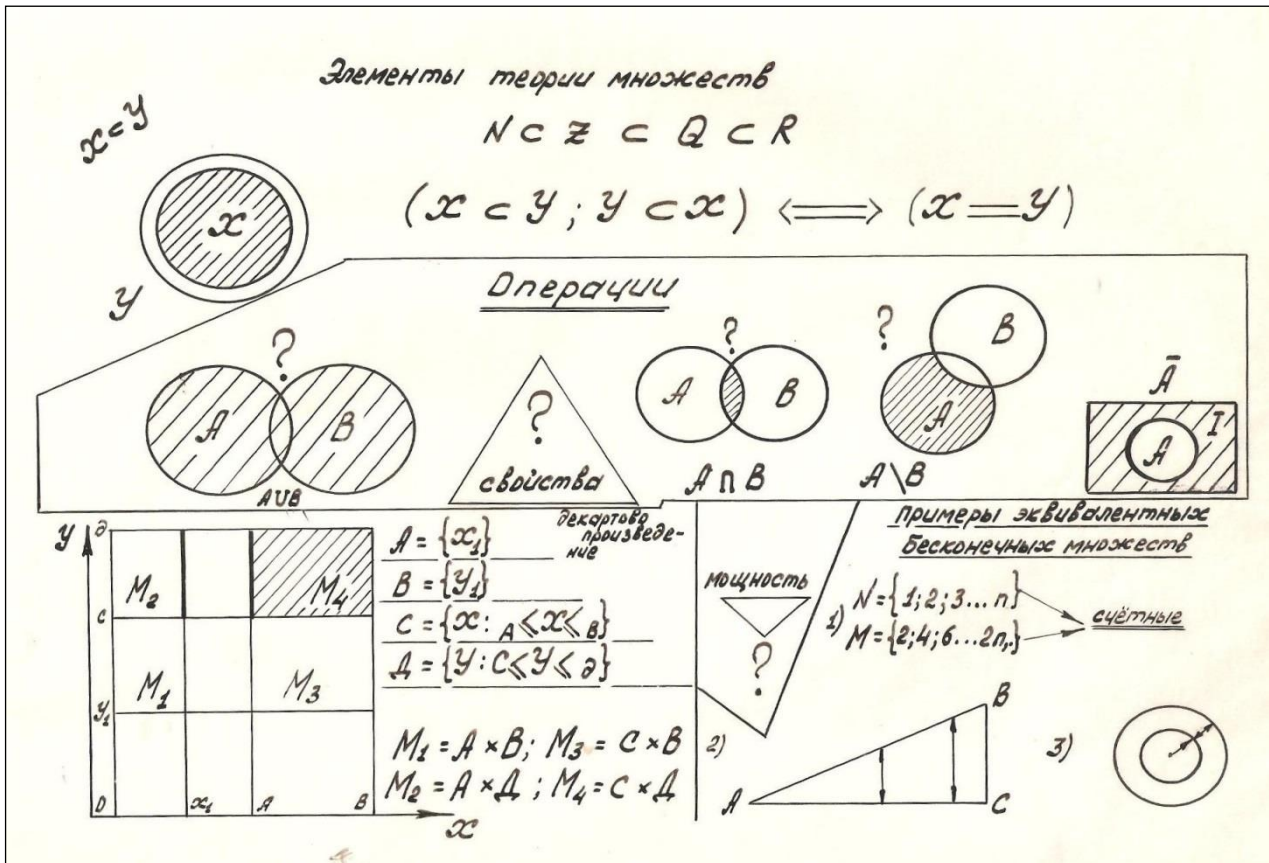 Элементы теории множеств
N ⊂ Z ⊂ Q ⊂ R
X ⊂ Y
(X ⊂ Y ; Y ⊂ X) ⟺ (X = Y)
X
Y
Операции
?
A
B
A∪B
?
свойства
?
A
B
A ∩ B
?
B
A
A \ B
Ā
I
A
Y
д
C
Y₁
D
x₁
A
B
X
M₂
M₄
M₁
M₃
A = {x₁}
декартово
произведе-
ние
B = {Y₁}
C = {x : A ≤ X ≤ B}
Д = {Y : C ≤ Y ≤ д}
M₁ = A × B; M₃ = C × B
M₂ = A × Д ; M₄ = C × Д
мощность
?
примеры эквивалентных
бесконечных множеств
1) N = {1; 2; 3... n}
M = {2; 4; 6... 2n,.}
счётные
2)
A
B
C
3)